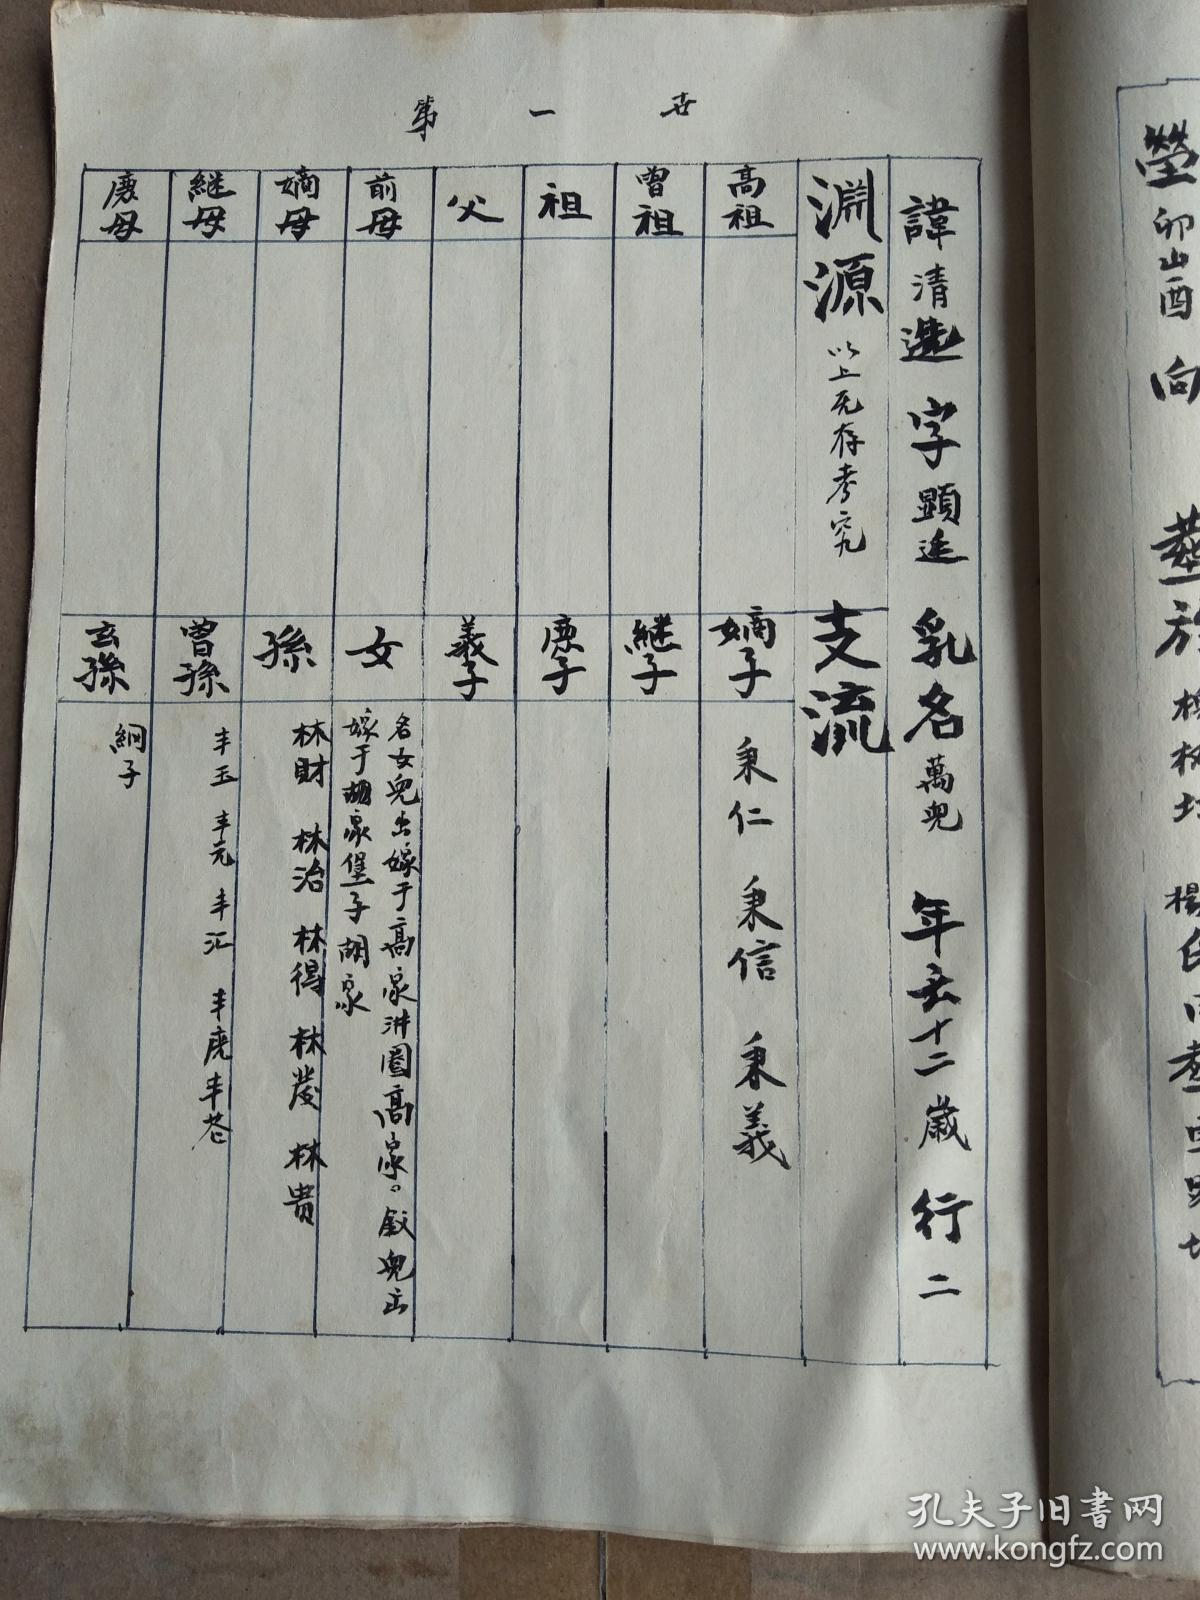 第一世
諱清選 字顯廷 乳名萬兒 年六十二歲 行二
淵源 以上无存考究
支流
高祖
曾祖
祖
父
前母
嫡母
継母
庶母
嫡子
秉仁 秉信 秉義
継子
庶子
義子
女
名女兒出嫁于高家洴圈高家。叙兒出
嫁于胡家堡子胡家
孫
林財 林治 林得 林發 林贵
曽孫
丰玉 丰元 丰汇 丰虎 丰苍
玄孫
綱子
塋 卯山酉 向
孔夫子旧书网
www.kongfz.com